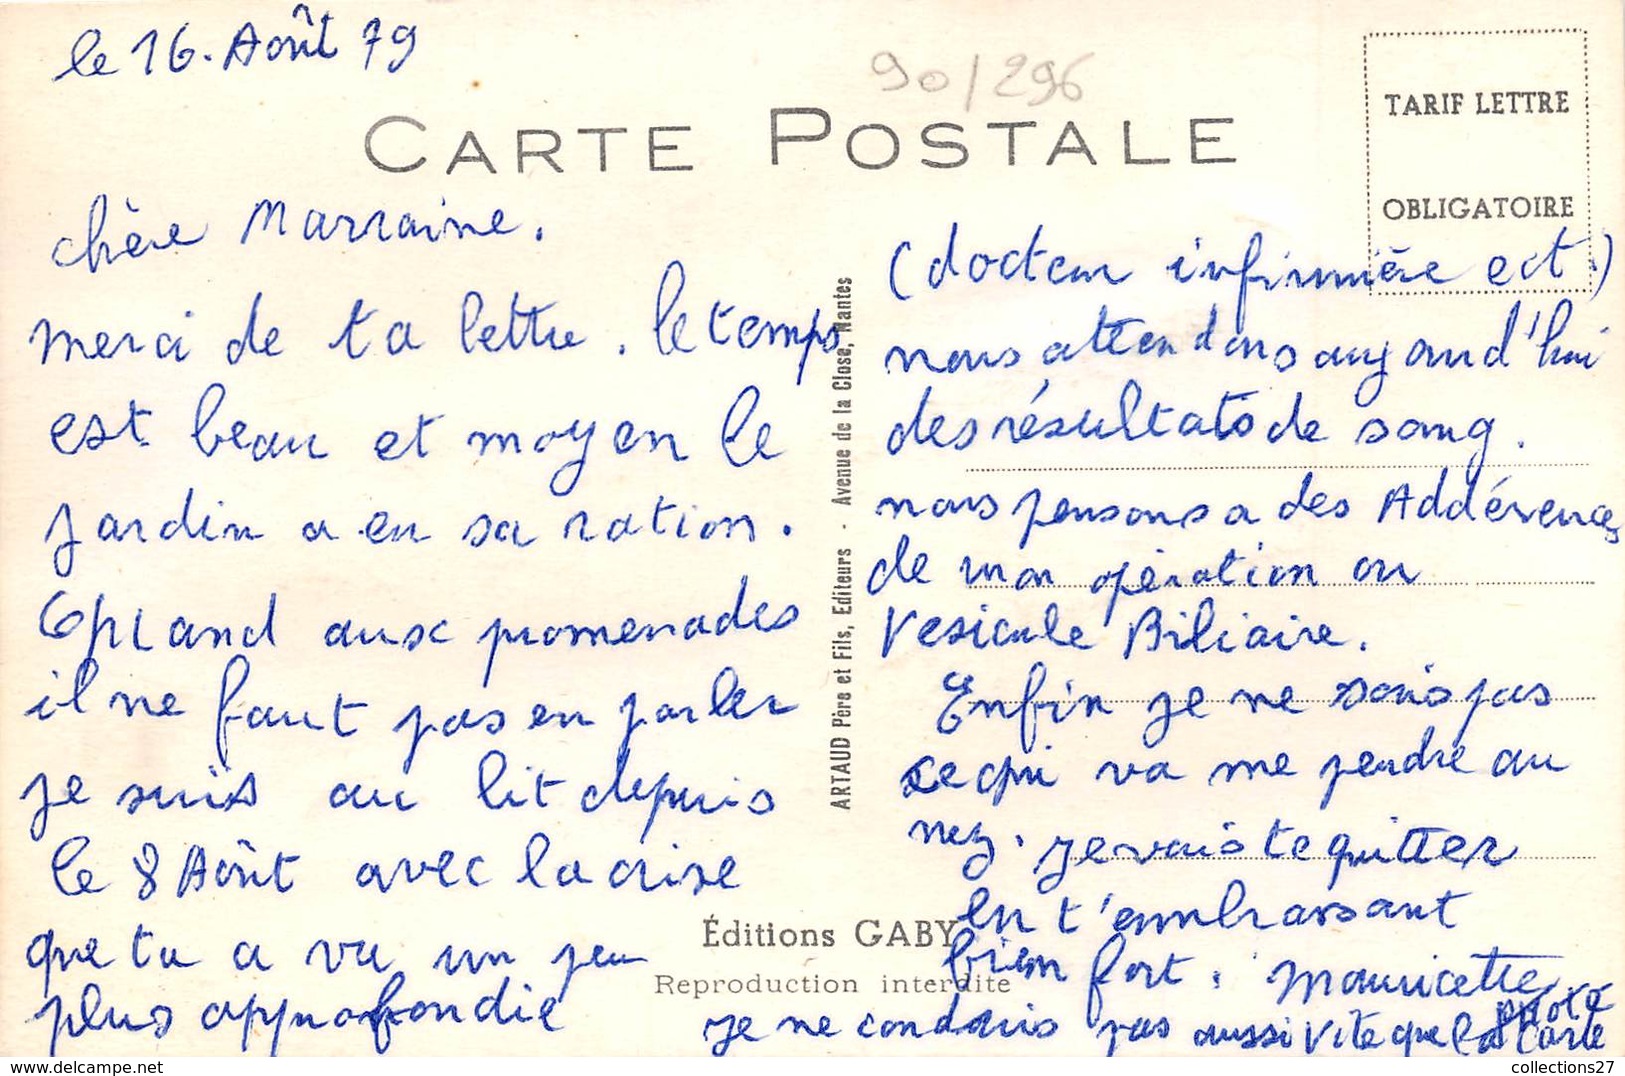 le 16. Août 79
90/296
CARTE POSTALE
TARIF LETTRE
OBLIGATOIRE
chère Marraine.
merci de ta lettre. le temps
est beau et moyen le
jardin a eu sa ration.
Quand aux promenades
il ne faut pas en parler
je suis au lit depuis
le 8 Août avec la crise
que tu a vu un peu
plus approfondie
ARTAUD Père et Fils, Editeurs - Avenue de la Close, Nantes
Éditions GABY
Reproduction interdite
(docteur infirmière ect.)
nous attendons aujourd'hui
des résultats de sang.
nous pensons a des Addérences
de mon opération ou
Vesicule Biliaire.
Enfin je ne sais pas
ce qui va me pendre au
nez. je vais te quitter
en t'embrassant
bien fort. Mauricette
je ne conduis pas aussi vite que la photo
carte
collections27